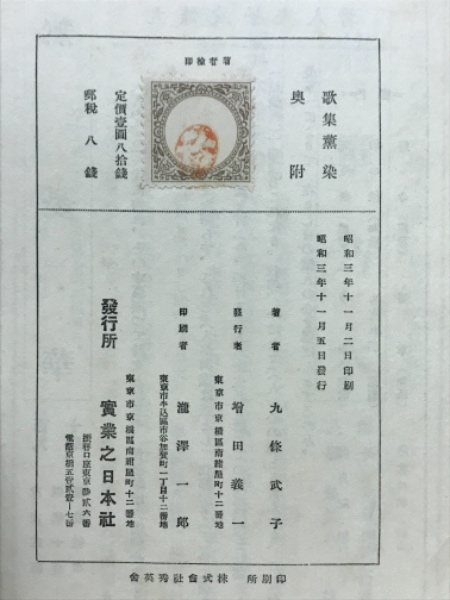 歌集薰染
奧附
著者檢印
定價壹圓八拾錢
郵稅八錢
昭和三年十一月二日印刷
昭和三年十一月五日發行
著者 九條武子
發行者 增田義一
東京市京橋區南紺屋町十二番地
印刷者 瀧澤一郎
東京市牛込區市谷加賀町一丁目十二番地
發行所 實業之日本社
東京市京橋區南紺屋町十二番地
振替口座東京參貳六番
印刷所 株式會社秀英舍